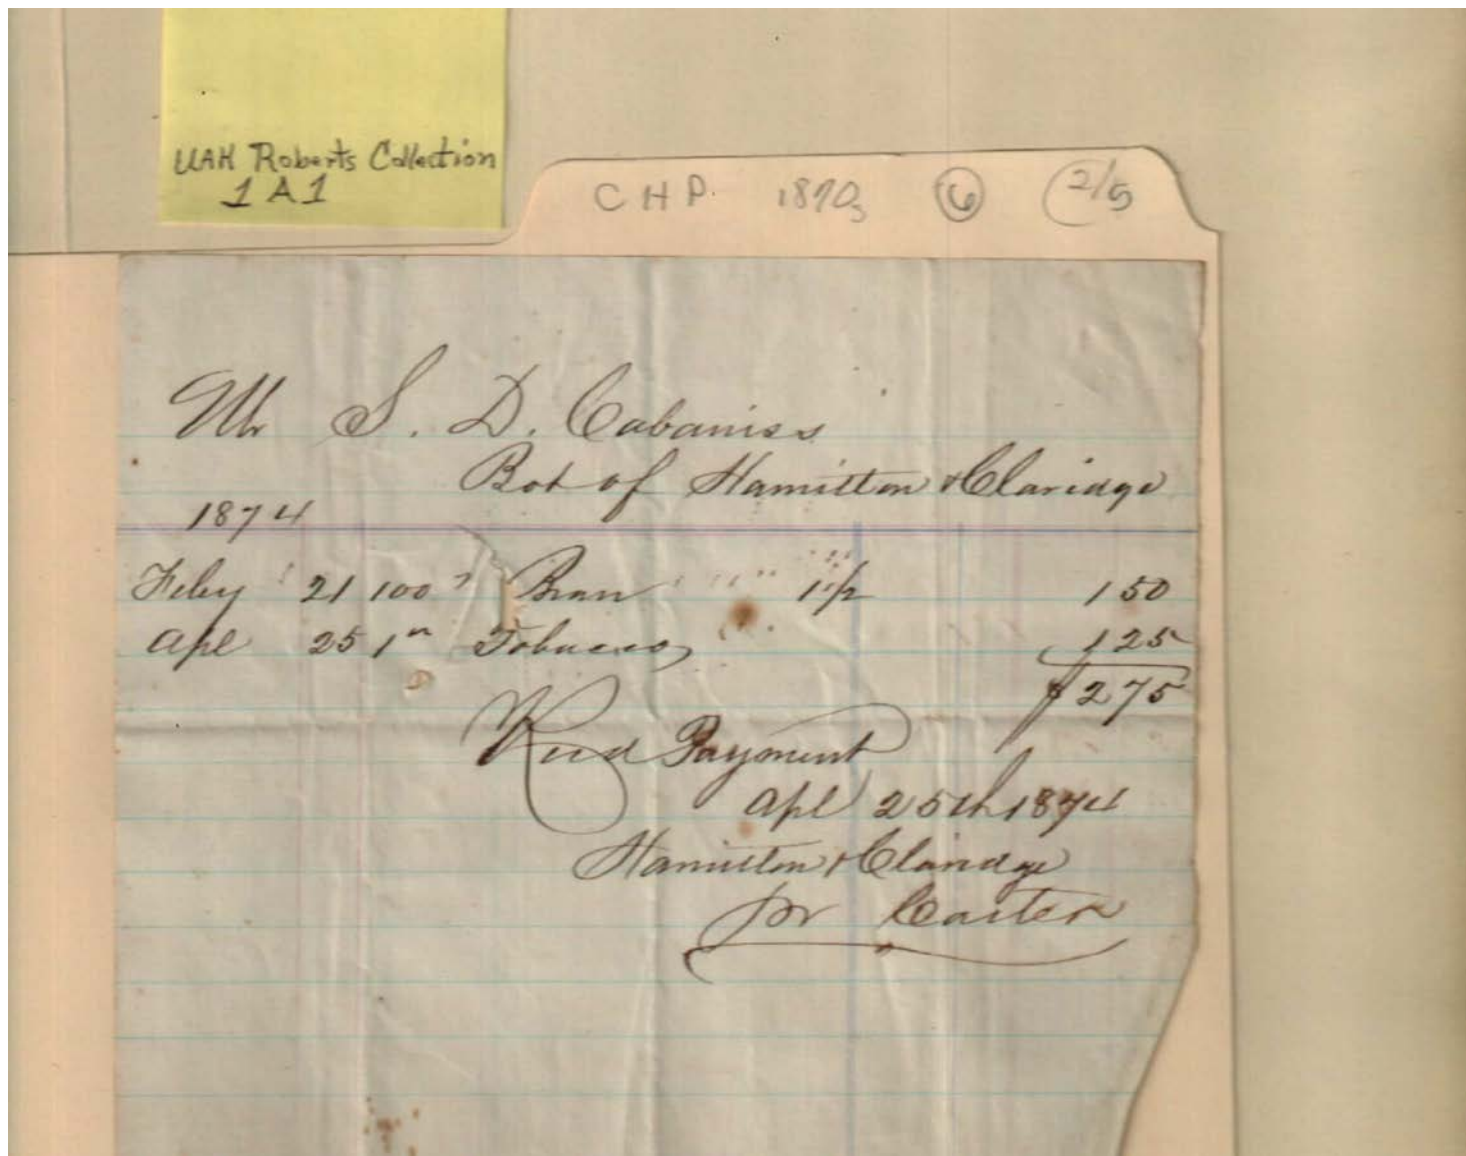 UAH Roberts Collection
1 A 1
C H P. 1870s 6 2/5
Mr S. D. Cabaniss
Bot of Hamilton & Claridge
1874
Feby 21 100 Bran 1 1/2 1 50
Apl 25 1 Tobacco 1 25
$ 2 75
Recd Payment
Apl 25th 1874
Hamilton & Claridge
pr Carter